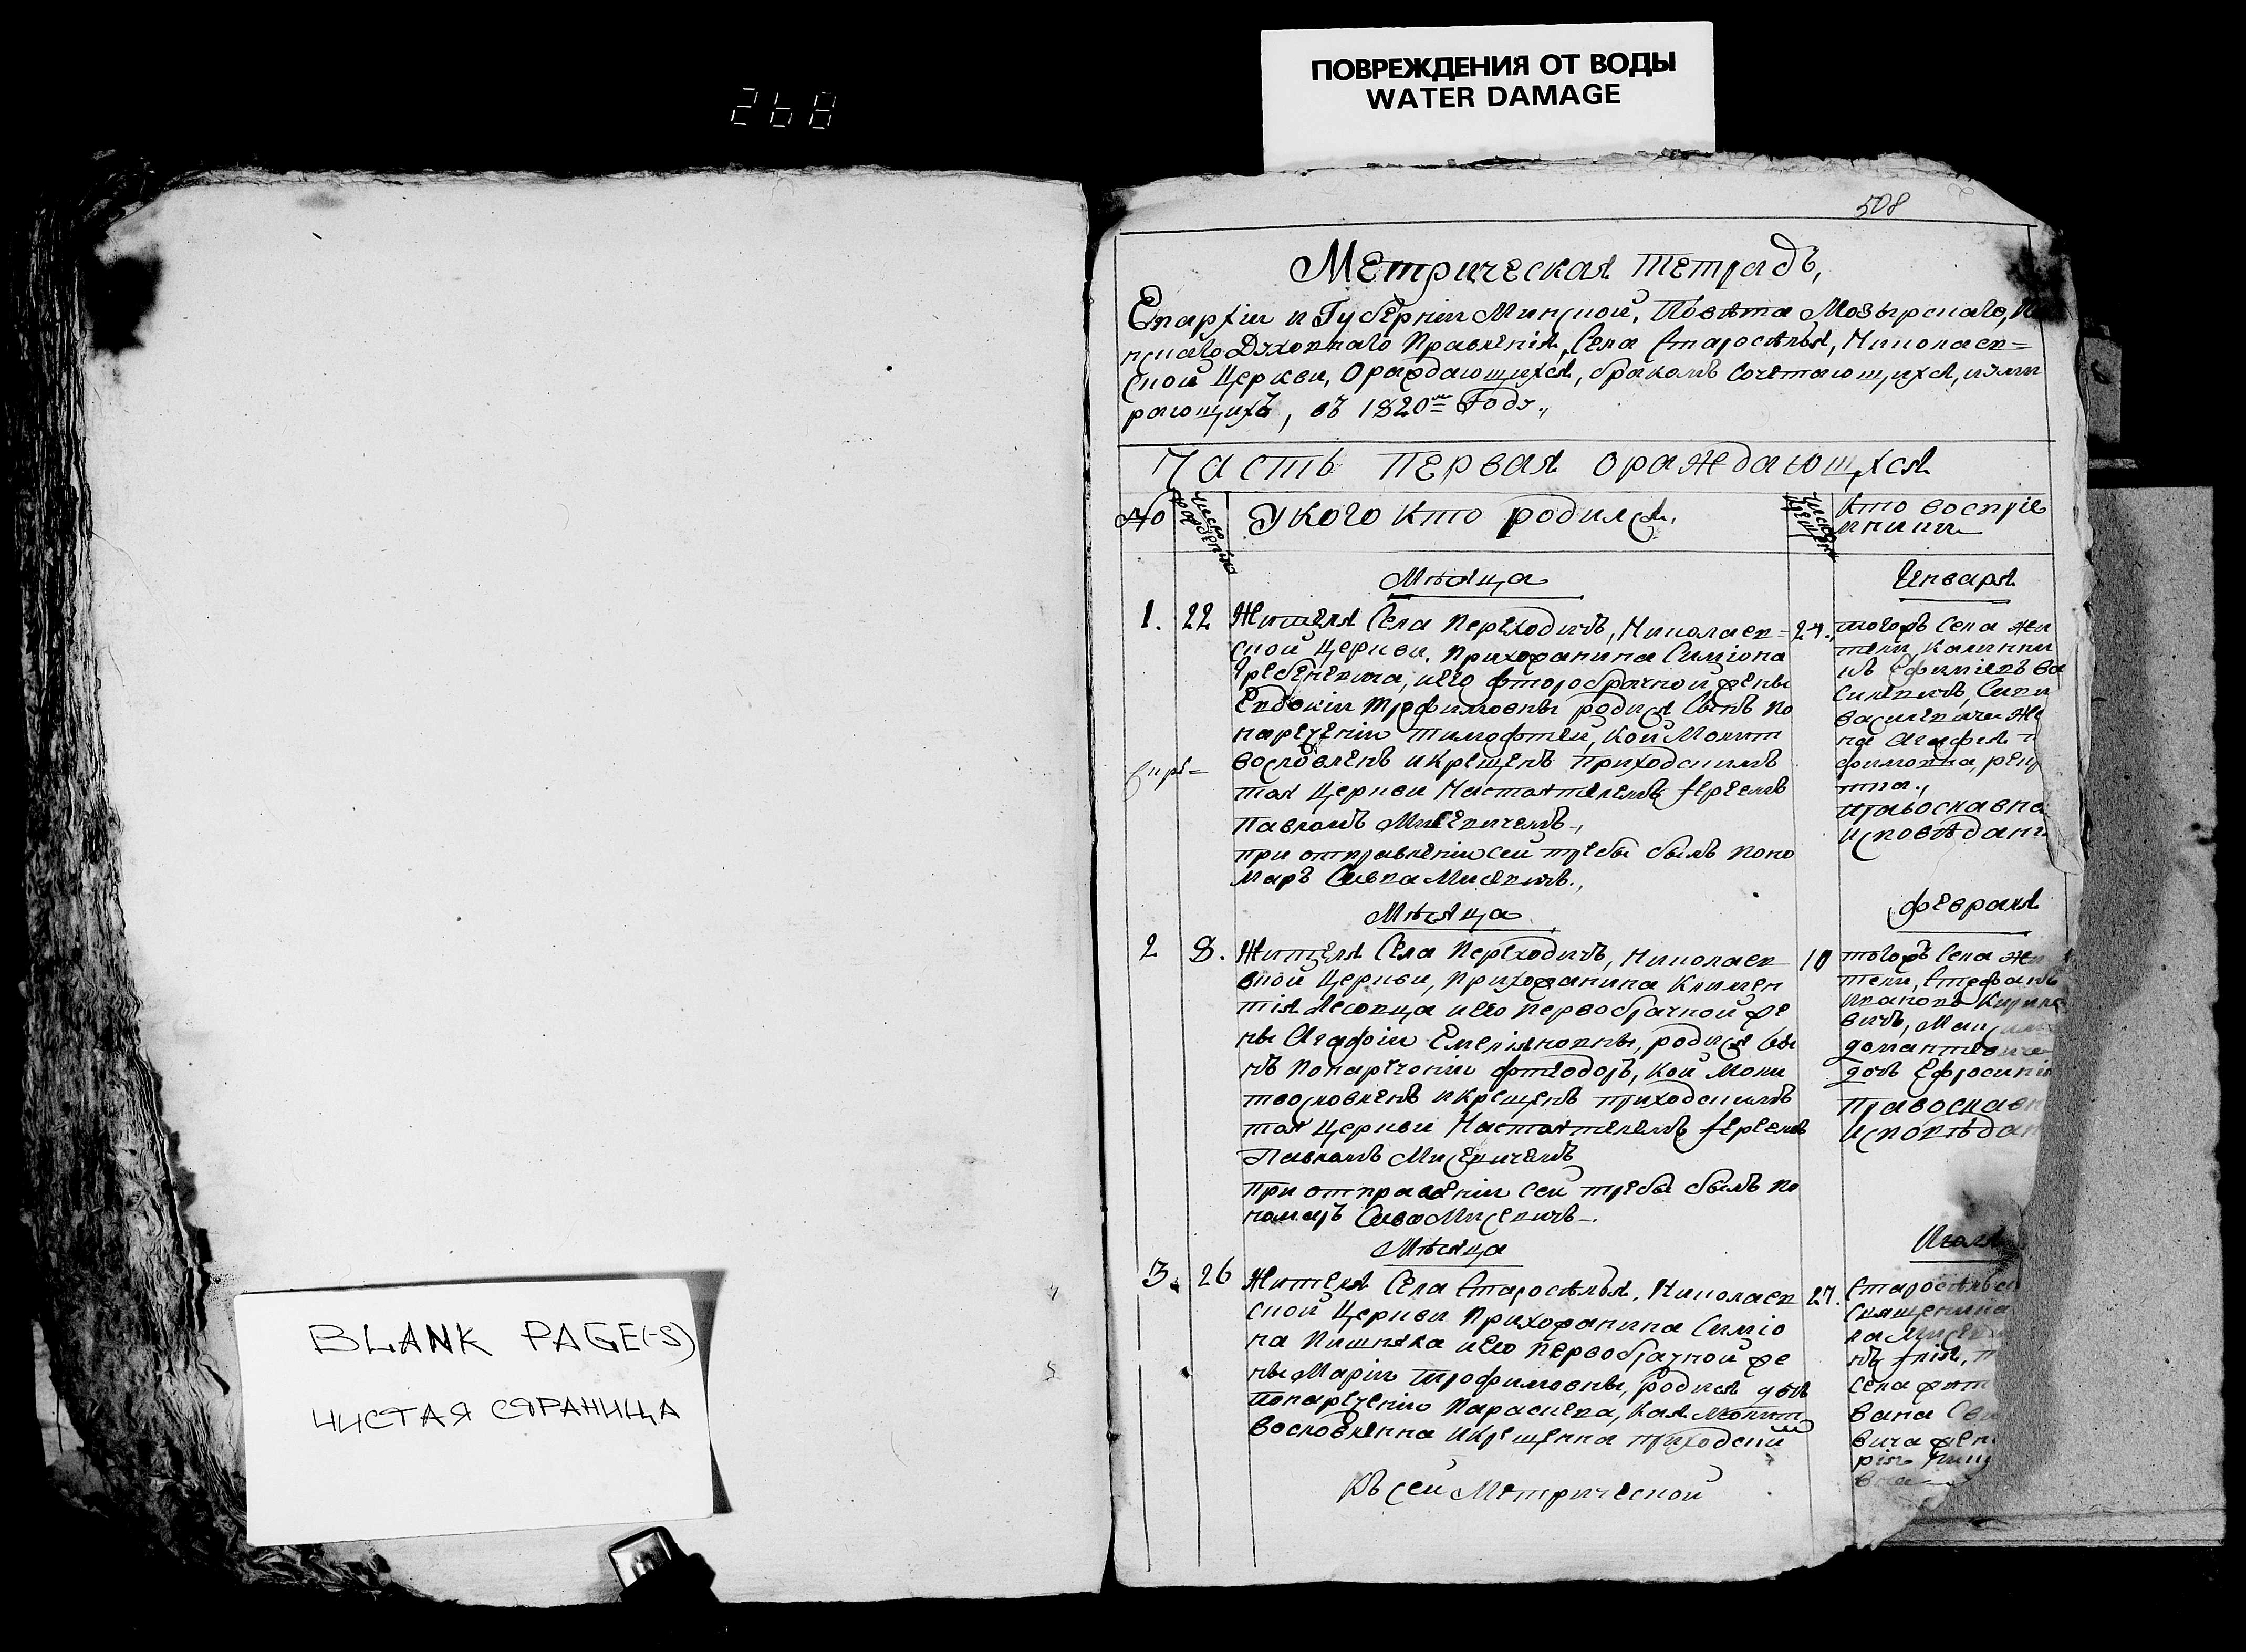 268
ПОВРЕЖДЕНИЯ ОТ ВОДЫ
WATER DAMAGE
508
Метрическая тетрадь,
Епархіи и Губерніи Минской, Повѣта Мозырскаго,
нскаго Духовнаго Правленія, Села Старосѣлья, Николаев=
ской Церкви,Ораждающихся, бракомъ Сочетающихся, иэми
рающихъ, въ 1820 Году.,
Часть первая ораждающхся
No
Число рожденія
Укого кто родился.
Число
кто воспріе
мники
Мѣсяца
Генваря
1. 22 Жителя Села Переходичъ, Николаев=
ской Церкви, Прихожанина Симіона
его фторобрачной жены
Евдокіи Трофимовны родися Сынъ по
нареченіи Тимофтей, кой Молит
вословленъ икрещенъ приходскимъ
тоя Церкви Настоятелемъ Іереемъ
Павломъ Мисевичемъ.,
при отправленіи сей требы былъ поно
маръ Савка Мисевичъ.,
24. тогожъ Села жи
тели, Калинни
Ефимієвъ Ва
силевичъ, Савки
василевича Же
на Агафея
фимовна,
православна
исповѣдан
Мѣсяца
Февраля
2 8. Жителя Села Переходичъ, Николаев
ской Церкви, Прихожанина Климен
тія Лесовца иего первобрачной же
ны Агафіи Емеліяновны, родися Сы
нъ Понареченіи фтеодоръ, кой Моли
твословленъ икрещенъ приходскимъ
тоя Церкви Настоятелемъ Іереемъ
Павломъ Мисевичемъ
при отправленіи сей требы былъ по
номаръ Савка Мисевичъ.
10 тогожъ Села жи
тели, Стефанъ
Ивановъ
вичъ,
дочъ Ефросині
православн
исповѣдан
Мѣсяца
3. 26 Жителя Села Старосѣлья, Николаев
ской Церкви Прихожанина Симіо
на Пишняка иего первобрачной же
ны Маріи Трофимовны, родися дочь
понареченіи Параскева, кая Молит
вословленна икрещенна приходский
27. Старосѣльск
Священника
села жит
вана
вича жен
Къ сей Метрической
BLANK PAGE(-S)
ЧИСТАЯ СТРАНИЦА